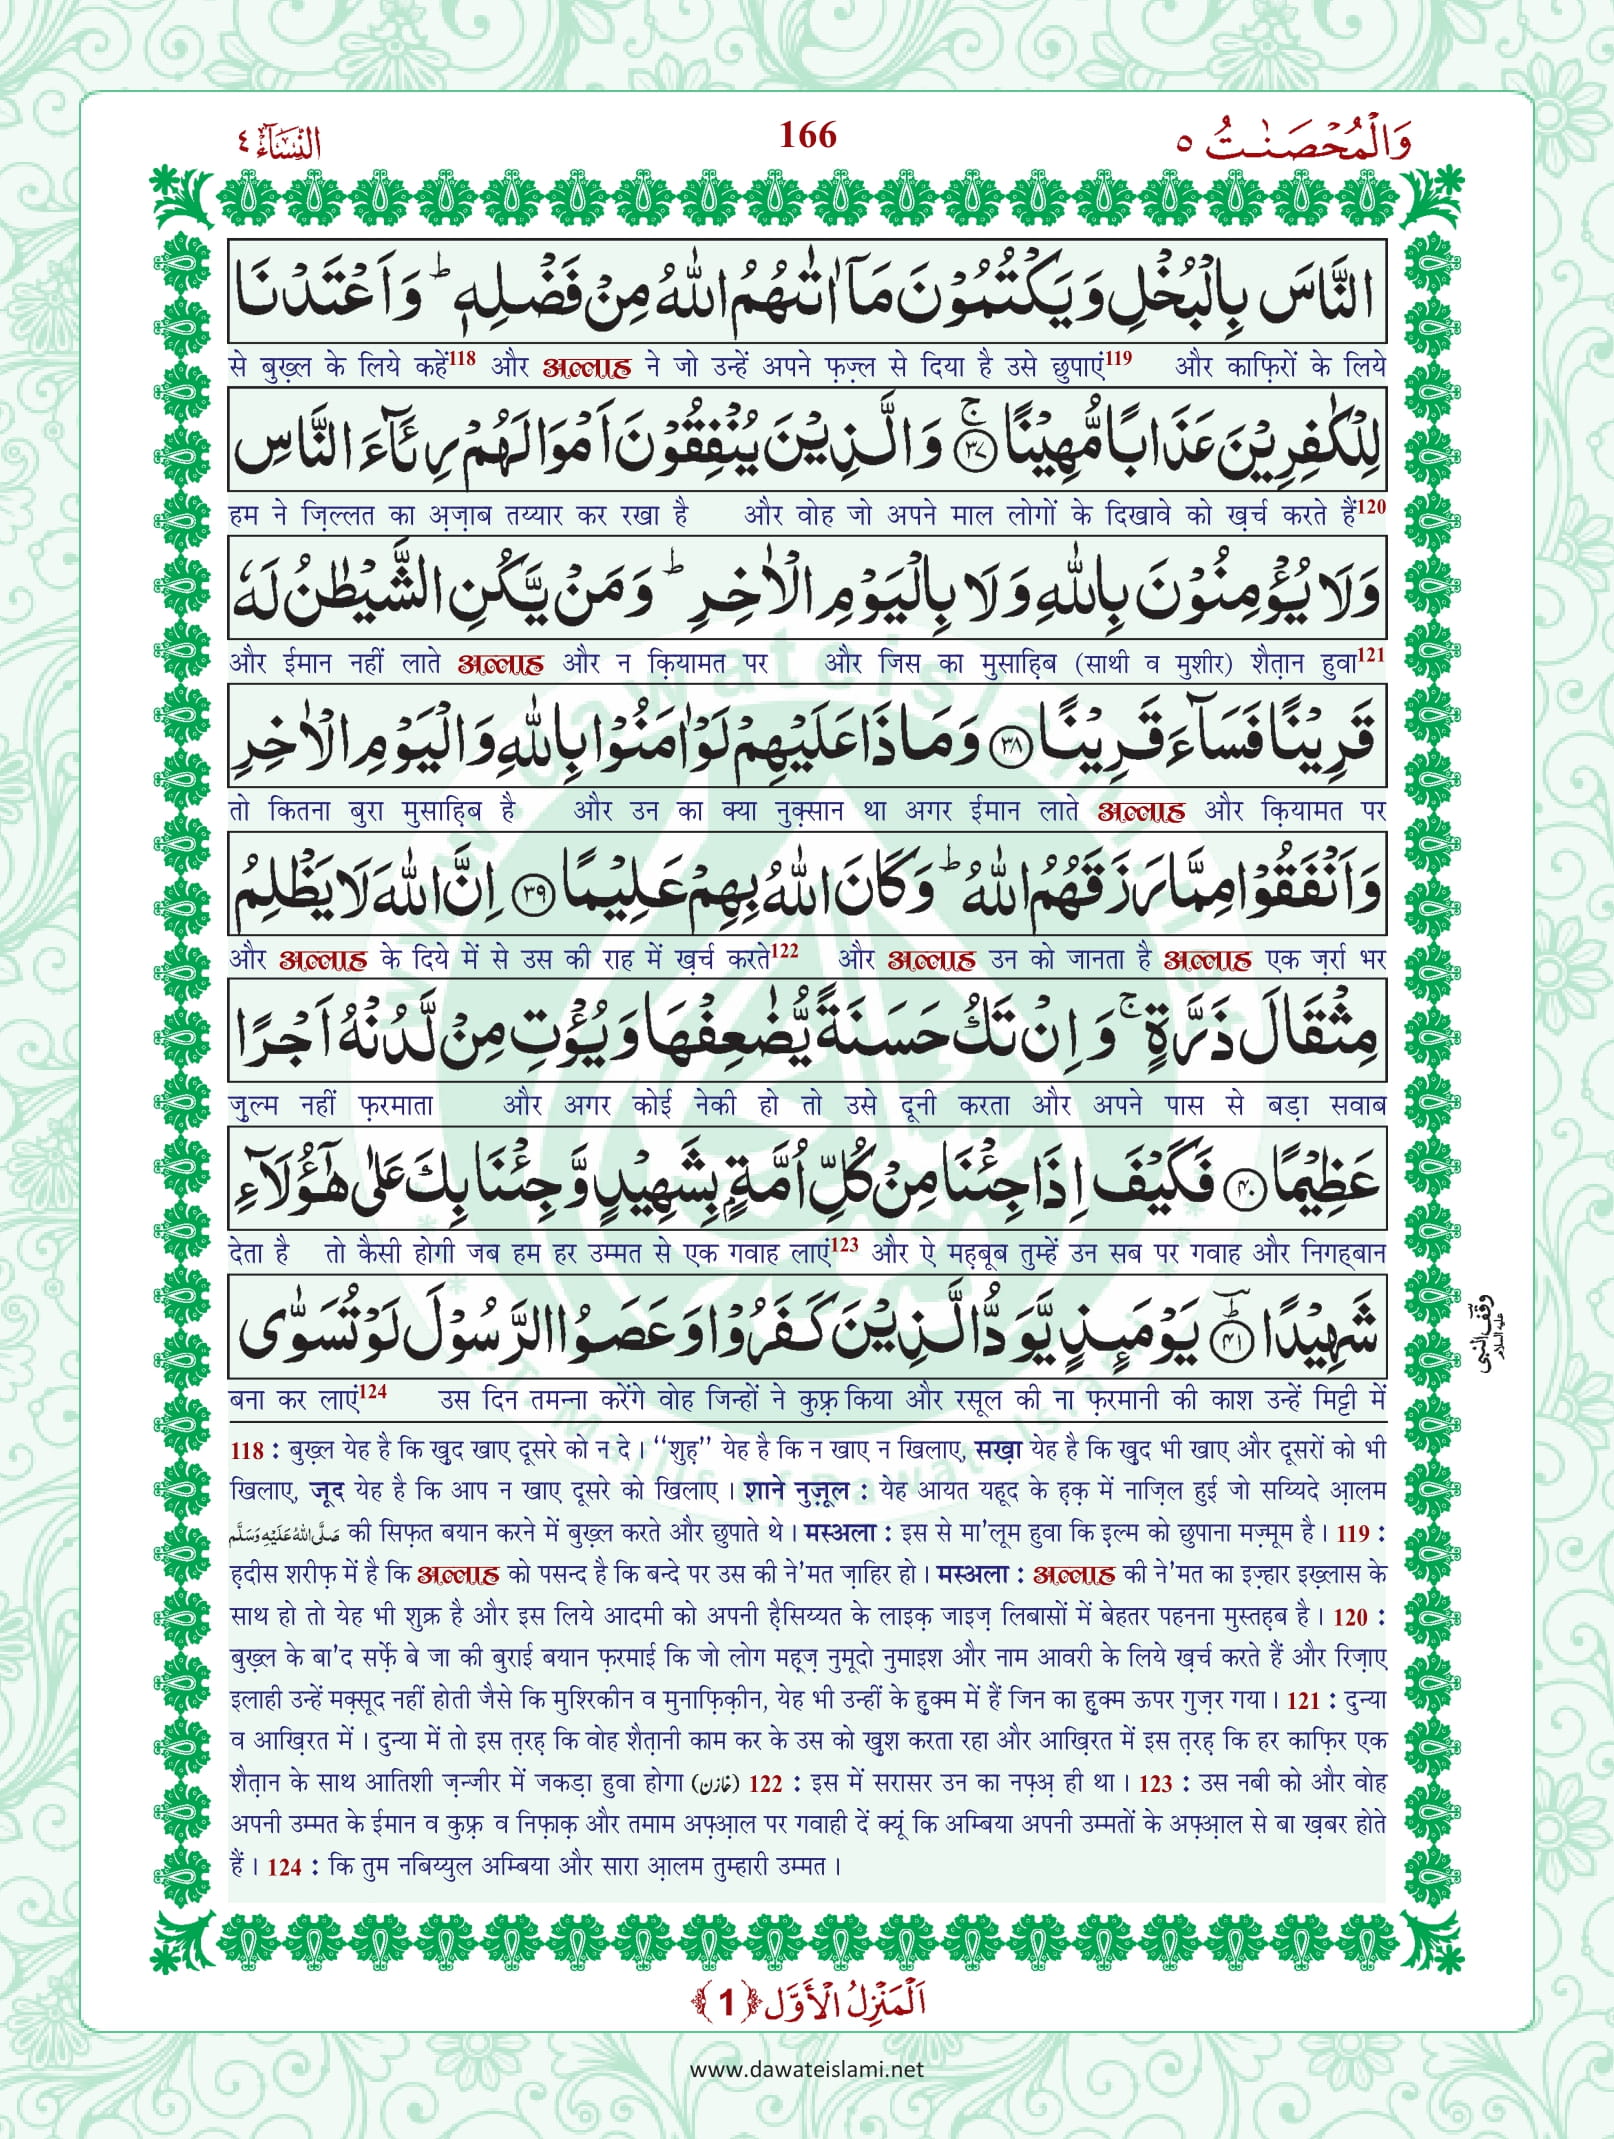 وَالْمُحْصَنٰتُ ٥
166
النِّسَآء ٤
النَّاسَ بِالْبُخْلِ وَيَكْتُمُوْنَ مَاۤ اٰتٰىهُمُ اللّٰهُ مِنْ فَضْلِهٖ ؕ وَاَعْتَدْنَا
से बुख़्ल के लिये कहें118 और अल्लाह ने जो उन्हें अपने फ़ज़्ल से दिया है उसे छुपाएं119 और काफ़िरों के लिये
لِلْكٰفِرِيْنَ عَذَابًا مُّهِيْنًا ۚ﴿٣٧﴾ وَالَّذِيْنَ يُنْفِقُوْنَ اَمْوَالَهُمْ رِئَآءَ النَّاسِ
हम ने ज़िल्लत का अज़ाब तय्यार कर रखा है और वोह जो अपने माल लोगों के दिखावे को ख़र्च करते हैं120
وَلَا يُؤْمِنُوْنَ بِاللّٰهِ وَلَا بِالْيَوْمِ الْاٰخِرِ ؕ وَمَنْ يَّكُنِ الشَّيْطٰنُ لَهٗ
और ईमान नहीं लाते अल्लाह और न क़ियामत पर और जिस का मुसाहिब (साथी व मुशीर) शैत़ान हुवा121
قَرِيْنًا فَسَآءَ قَرِيْنًا ﴿٣٨﴾ وَمَاذَا عَلَيْهِمْ لَوْ اٰمَنُوْا بِاللّٰهِ وَالْيَوْمِ الْاٰخِرِ
तो कितना बुरा मुसाहि़ब है और उन का क्या नुक़्सान था अगर ईमान लाते अल्लाह और क़ियामत पर
وَاَنْفَقُوْا مِمَّا رَزَقَهُمُ اللّٰهُ ؕ وَكَانَ اللّٰهُ بِهِمْ عَلِيْمًا ﴿٣٩﴾ اِنَّ اللّٰهَ لَا يَظْلِمُ
और अल्लाह के दिये में से उस की राह में ख़र्च करते122 और अल्लाह उन को जानता है अल्लाह एक ज़र्रा भर
مِثْقَالَ ذَرَّةٍ ۚ وَاِنْ تَكُ حَسَنَةً يُّضٰعِفْهَا وَيُؤْتِ مِنْ لَّدُنْهُ اَجْرًا
ज़ुल्म नहीं फ़रमाता और अगर कोई नेकी हो तो उसे दूनी करता और अपने पास से बड़ा सवाब
عَظِيْمًا ﴿٤٠﴾ فَكَيْفَ اِذَا جِئْنَا مِنْ كُلِّ اُمَّةٍۭ بِشَهِيْدٍ وَّجِئْنَا بِكَ عَلٰى هٰۤؤُلَآءِ
देता है तो कैसी होगी जब हम हर उम्मत से एक गवाह लाएं123 और ऐ मह़बूब तुम्हें उन सब पर गवाह और निगह्बान
شَهِيْدًا ﴿٤١﴾ؕ يَوْمَىِٕذٍ يَّوَدُّ الَّذِيْنَ كَفَرُوْا وَعَصَوُا الرَّسُوْلَ لَوْ تُسَوّٰى
وقف النبى عليه السلام
बना कर लाएं124 उस दिन तमन्ना करेंगे वोह जिन्हों ने कुफ़्र किया और रसूल की ना फ़रमानी की काश उन्हें मिट्टी में
118 : बुख़्ल येह है कि ख़ुद खाए दूसरे को न दे । “शुह़” येह है कि न खाए न खिलाए, सख़ा येह है कि ख़ुद भी खाए और दूसरों को भी
खिलाए, जूद येह है कि आप न खाए दूसरे को खिलाए । शाने नुज़ूल : येह आयत यहूद के ह़क़ में नाज़िल हुई जो सय्यिदे आ़लम
صَلَّى اللهُ عَلَيْهِ وَسَلَّم की सिफ़त बयान करने में बुख़्ल करते और छुपाते थे । मस्अला : इस से मा'लूम हुवा कि इ़ल्म को छुपाना मज़्मूम है । 119 :
ह़दीस शरीफ़ में है कि अल्लाह को पसन्द है कि बन्दे पर उस की ने'मत ज़ाहिर हो । मस्अला : अल्लाह की ने'मत का इज़्हार इख़्लास के
साथ हो तो येह भी शुक्र है और इस लिये आदमी को अपनी है़सिय्यत के लाइक़ जाइज़ लिबासों में बेहतर पहनना मुस्तह़ब है । 120 :
बुख़्ल के बा'द सर्फ़े बे जा की बुराई बयान फ़रमाई कि जो लोग मह़्ज़ नुमूदो नुमाइश और नाम आवरी के लिये ख़र्च करते हैं और रिज़ाए
इलाही उन्हें मक़्सूद नहीं होती जैसे कि मुश्रिकीन व मुनाफ़िक़ीन, येह भी उन्हीं के हु़क्म में हैं जिन का हु़क्म ऊपर गुज़र गया । 121 : दुन्या
व आख़िरत में । दुन्या में तो इस त़रह़ कि वोह शैत़ानी काम कर के उस को ख़ुश करता रहा और आख़िरत में इस त़रह़ कि हर काफ़िर एक
शैत़ान के साथ आतिशी ज़न्जीर में जकड़ा हुवा होगा (خازن) 122 : इस में सरासर उन का नफ़्अ़ ही था । 123 : उस नबी को और वोह
अपनी उम्मत के ईमान व कुफ़्र व निफ़ाक़ और तमाम अफ़्आ़ल पर गवाही दें क्यूं कि अम्बिया अपनी उम्मतों के अफ़्आ़ल से बा ख़बर होते
हैं । 124 : कि तुम नबिय्युल अम्बिया और सारा आ़लम तुम्हारी उम्मत ।
اَلْمَنْزِلُ الْاَوَّل ﴿1﴾
www.dawateislami.net